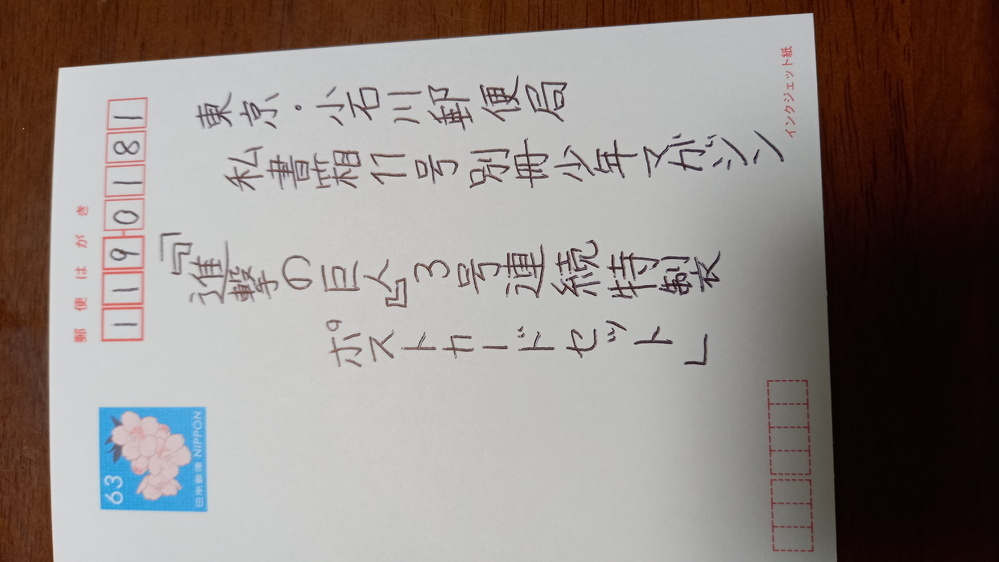 郵便はがき
1190181
東京・小石川郵便局
私書箱11号別冊少年マガジン
「『進撃の巨人』3号連続特製
ポストカードセット」
63
日本郵便 NIPPON
インクジェット紙